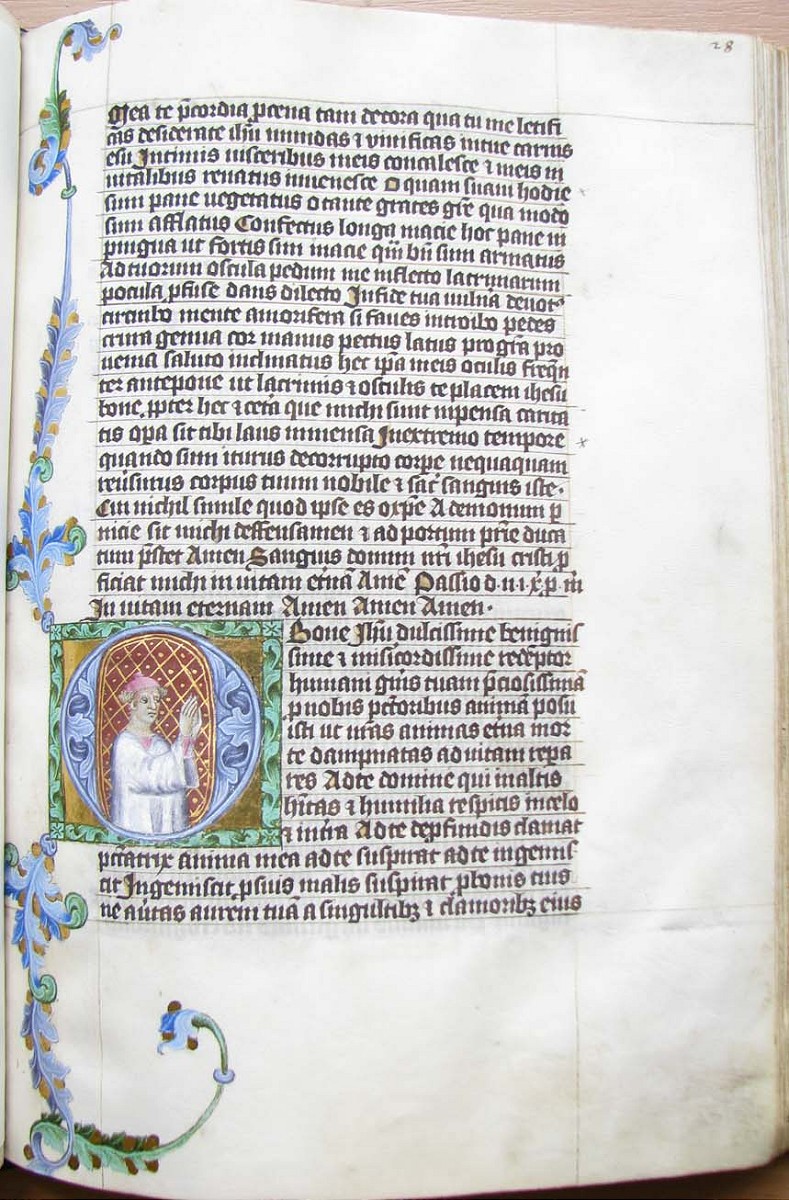 28
Mea te p̄cordia p̱cena tam decora qua tu me letifi
cas desiderate ihū mundas ⁊ viuificas intue carnis
esū Intimis uisceribus meis concalesce ⁊ meis in
uitalibus renatus iuuenesce O quam suaui hodie
sum pane uegetatus o tante grates gr̄e qua modo
sum afflatus Confectus longa macie hoc pane in
pingua ut fortis sim macie qm̄ bn̄ sim armatus
Ad tuorum oscula pedum me inflecto lacrimarum
pocula p̱fuse dans dilecto Infide tua uulna deuot
circuibo mente amorifera si faues introibo pedes
crura genua cor manus pectus latus pro gr̄a pro
uenia saluto inclinatus hec ip̄a meis oculis freqn̄
ter antepone ut lacrimis ⁊ osculis te placem ihesu
bone, p̱pter hec ⁊ cetā que michi sunt inpensa carita
tis op̄a sit tibi laus inmensa In extremo tempore
quando sum iturus de corrupto corp̄e nequaquam
reūsurus corpus tuum nobile ⁊ sac̄ sanguis iste·
Cui nichil simile quod ipse es o xp̄e A demonum p̱
nicie sit michi deffensamen ⁊ ad portum p̄rie duca
tum p̄stet Amen Sanguis domini nr̄i ihesu cristi p̱
ficiat michi in uitam etn̄ā Amē Passio d·n·i·x̄·p· m̄
In uitam eternam Amen Amen Amen·
O Bone Ihū dulcissime benignis
sime ⁊ misicordissime redēptor
humani gn̄is tuam p̄ciosissimā
p̱ nobis pctoribus animā posu
isti ut nr̄as animas etn̄a mor
te dampnatas ad uitam repa
res Ad te domine qui in altis
hītas ⁊ humilia respicis in celo
⁊ in tr̄a Ad te dep̱fundis clamat
pctatrix anima mea ad te suspirat ad te ingemis
cit Ingemiscit p̱ suis malis suspirat p̱ bonis tuis
ne aūtas aurem tuā a singultibꝫ ⁊ clamoribꝫ eius